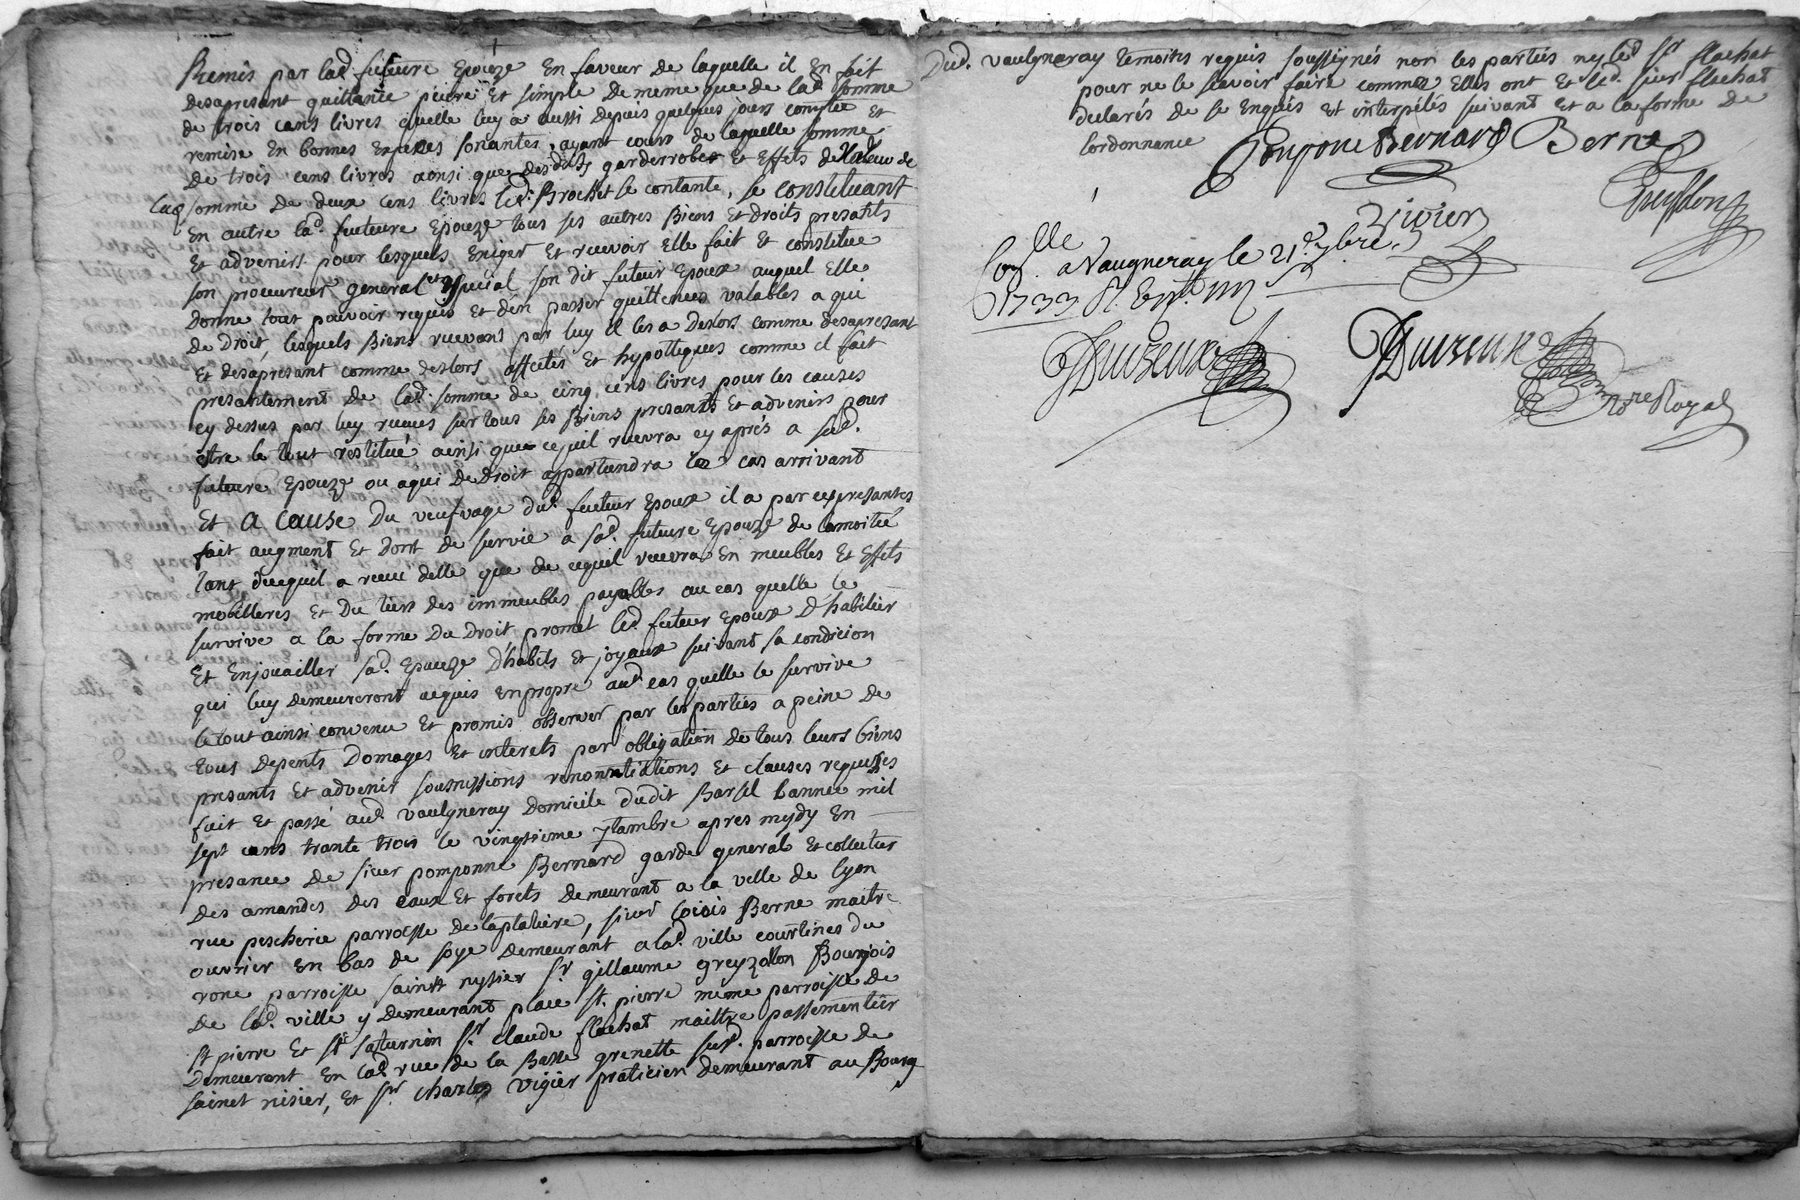 Remis par lad. futeure Epouze En faveur de laquelle il En fait
desapresant quittance pure Et simple de meme que de lad. somme
de trois cens livres quelle luy a aussi depuis quelques jours comptée Et
remise En bonnes Especes sonantes, ayant cours de laquelle somme
de trois cens livres ainsi que desdits garderrobes Et Effets de valeur de
lad. somme de deux cens livres led. Brochet se contante, se constituant
En outre lad. futeure Epouze tous ses autres Biens Et droits presants
Et advenirs pour lesquels Exiger Et recevoir Elle fait Et constitue
son procureur general et spécial son dit futeur Epoux auquel Elle
donne tout pouvoir requis Et d'en passer quittences valables a qui
de Droit, lesquels Biens recevant par luy il les a deslors comme desapresant
Et desapresant comme deslors affectés Et hypottequés comme il fait
presantement de lad. somme de cinq cens livres pour les causes
cy dessus par luy receues sur tous ses Biens presants Et advenirs pour
estre le tout restitué ainsi que ce quil recevra cy aprés a sad.
futeure Epouze ou a qui de Droit appartiendra le cas arrivant
Et a cause du veufvage dud. futeur Epoux il a par ces presantes
fait augment Et dont de survie a sad. futeure Epouze de lamoitié
tant de cequil a receu delle que de cequil recevra En meubles Et Effets
mobilleres Et du tiers des immeubles payables au cas quelle le
survive a la forme du droit promet led. futeur Epoux d'habilier
Et Enjouailler sad. Epouze d'habits Et joyaux suivant sa condicion
qui luy demeureront acquis En propre aud. cas quelle le survive
le tout ainsi convenu Et promis observer par les parties a peine de
tous depents domages Et interets par obligation de tous leurs biens
presants Et advenir soumissions renontiations Et clauses requises
fait Et passé aud. vaulgneray domicile dudit Barsel lannée mil
sept cens trante trois le vingtieme 7tambre apres mydy En
presance de sieur pomponne Bernard garde general Et collecteur
des amandes des eaux Et forets demeurant a la ville de lyon
rue pescherie parroisse de laplatiere, sieur Loüis Berne maitre
ouvrier En bas de soye demeurant a lad. ville courtines du
rone parroisse saint nysier sr. gillaume greyzollon Bourgois
de lad. ville y demeurant place st. pierre meme parroisse de
st pierre Et st. saturnin sr. claude flachat maittre passementier
demeurant En lad. rue de la Basse grenette susd. parroisse de
sainct nisier, Et sr. charles vigier praticien demeurant au Bourg
Dud. vaulgneray temoins requis soussignés non les parties ny led. sr. flachat
pour ne le scavoir faire comme Elles ont Et led. sieur flachat
declarés de ce Enquis Et interpelés suivant Et a la forme de
lordonnance
Pompone Bernard Berne
Vivier
Conlle. a Vaugneray le 21e. 7bre.
1733
Duvzeux Duvzeux
Nore Royal